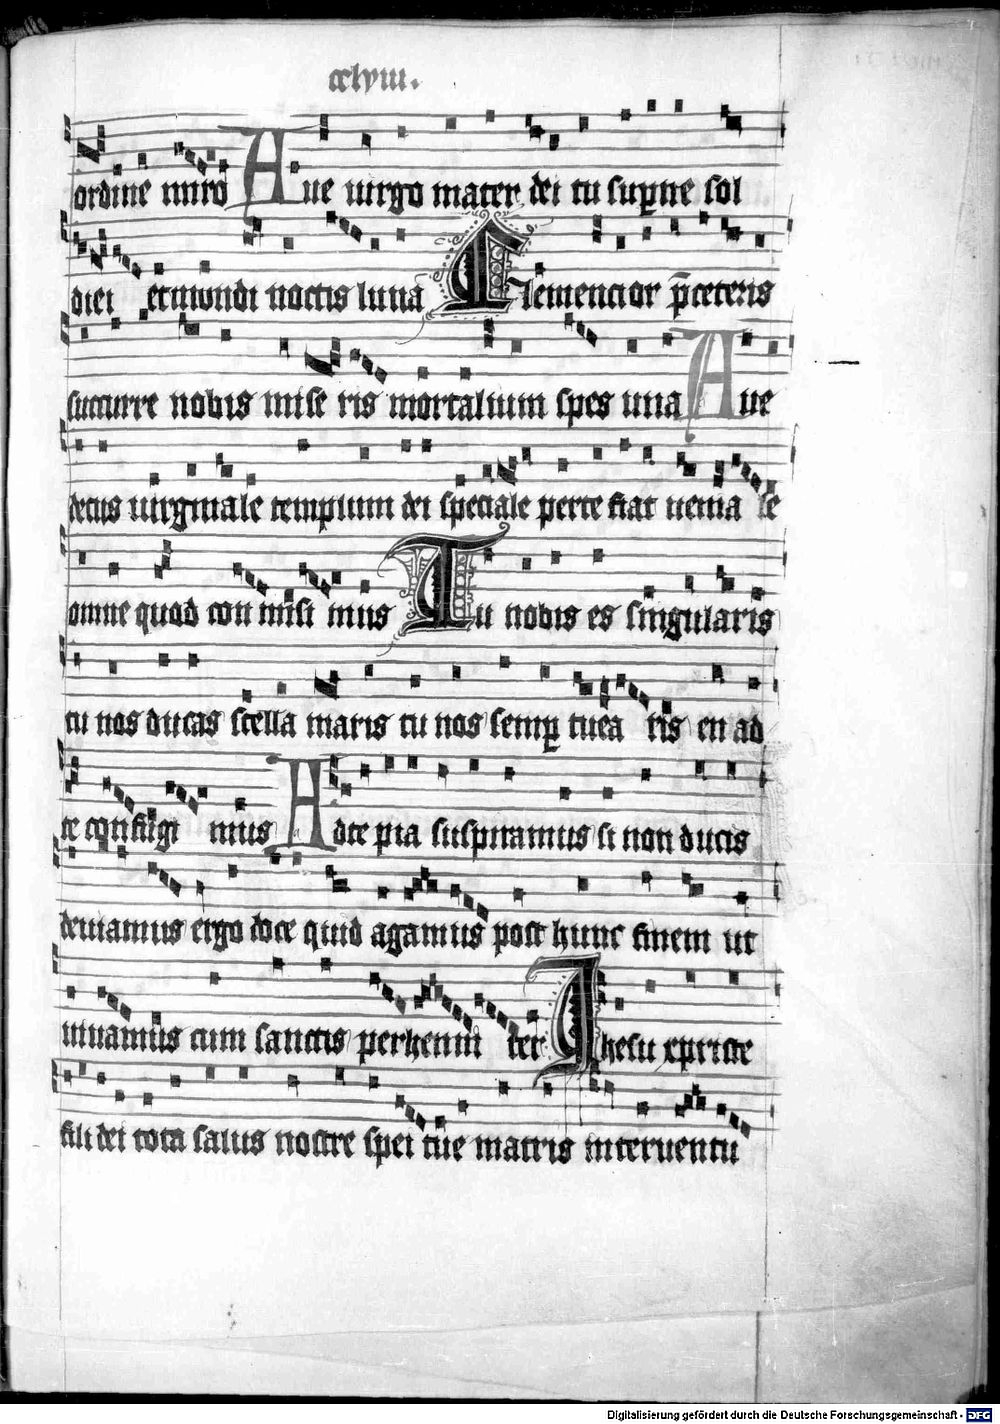 cclviii.
ordine miro Aue uirgo mater dei tu suꝑne sol
diei et mondi noctis luna Clemencior p̄ceteris
succurre nobis mise ris mortalium spes una Aue
decus uirginale templum dei speciale per te fiat uenia le
omne quod con misi mus Tu nobis es singularis
tu nos ducas stella maris tu nos semꝑ tuea ris en ad
te confugi mus Ad te pia suspiramus si non ducis
deuiamus ergo doce quid agamus post hunc finem ut
uiuamus cum sanctis perhenni ter Ihesu xpriste
fili dei tota salus nostre spei tue matris interuentu
Digitalisierung gefördert durch die Deutsche Forschungsgemeinschaft - DFG